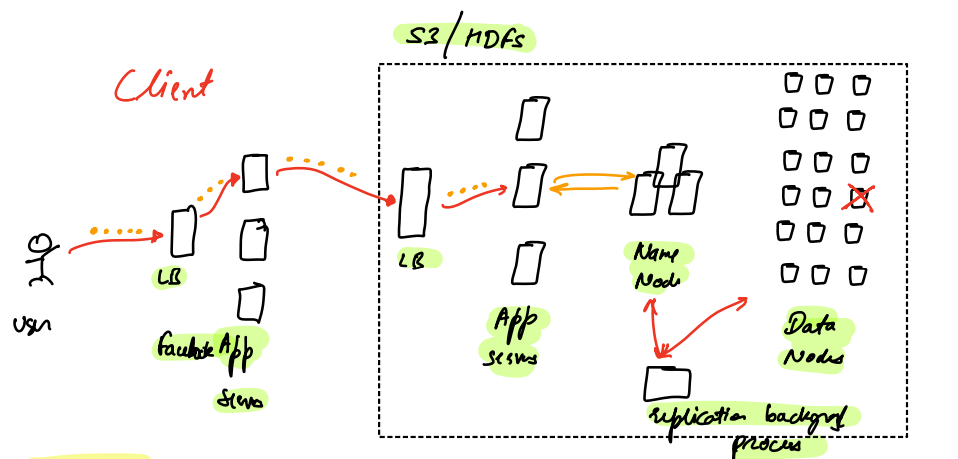 S3/HDFS
Client
LB
LB
User
Facebook App
Servers
App
servers
Name
Node
Data
Nodes
replication backgrnd
process